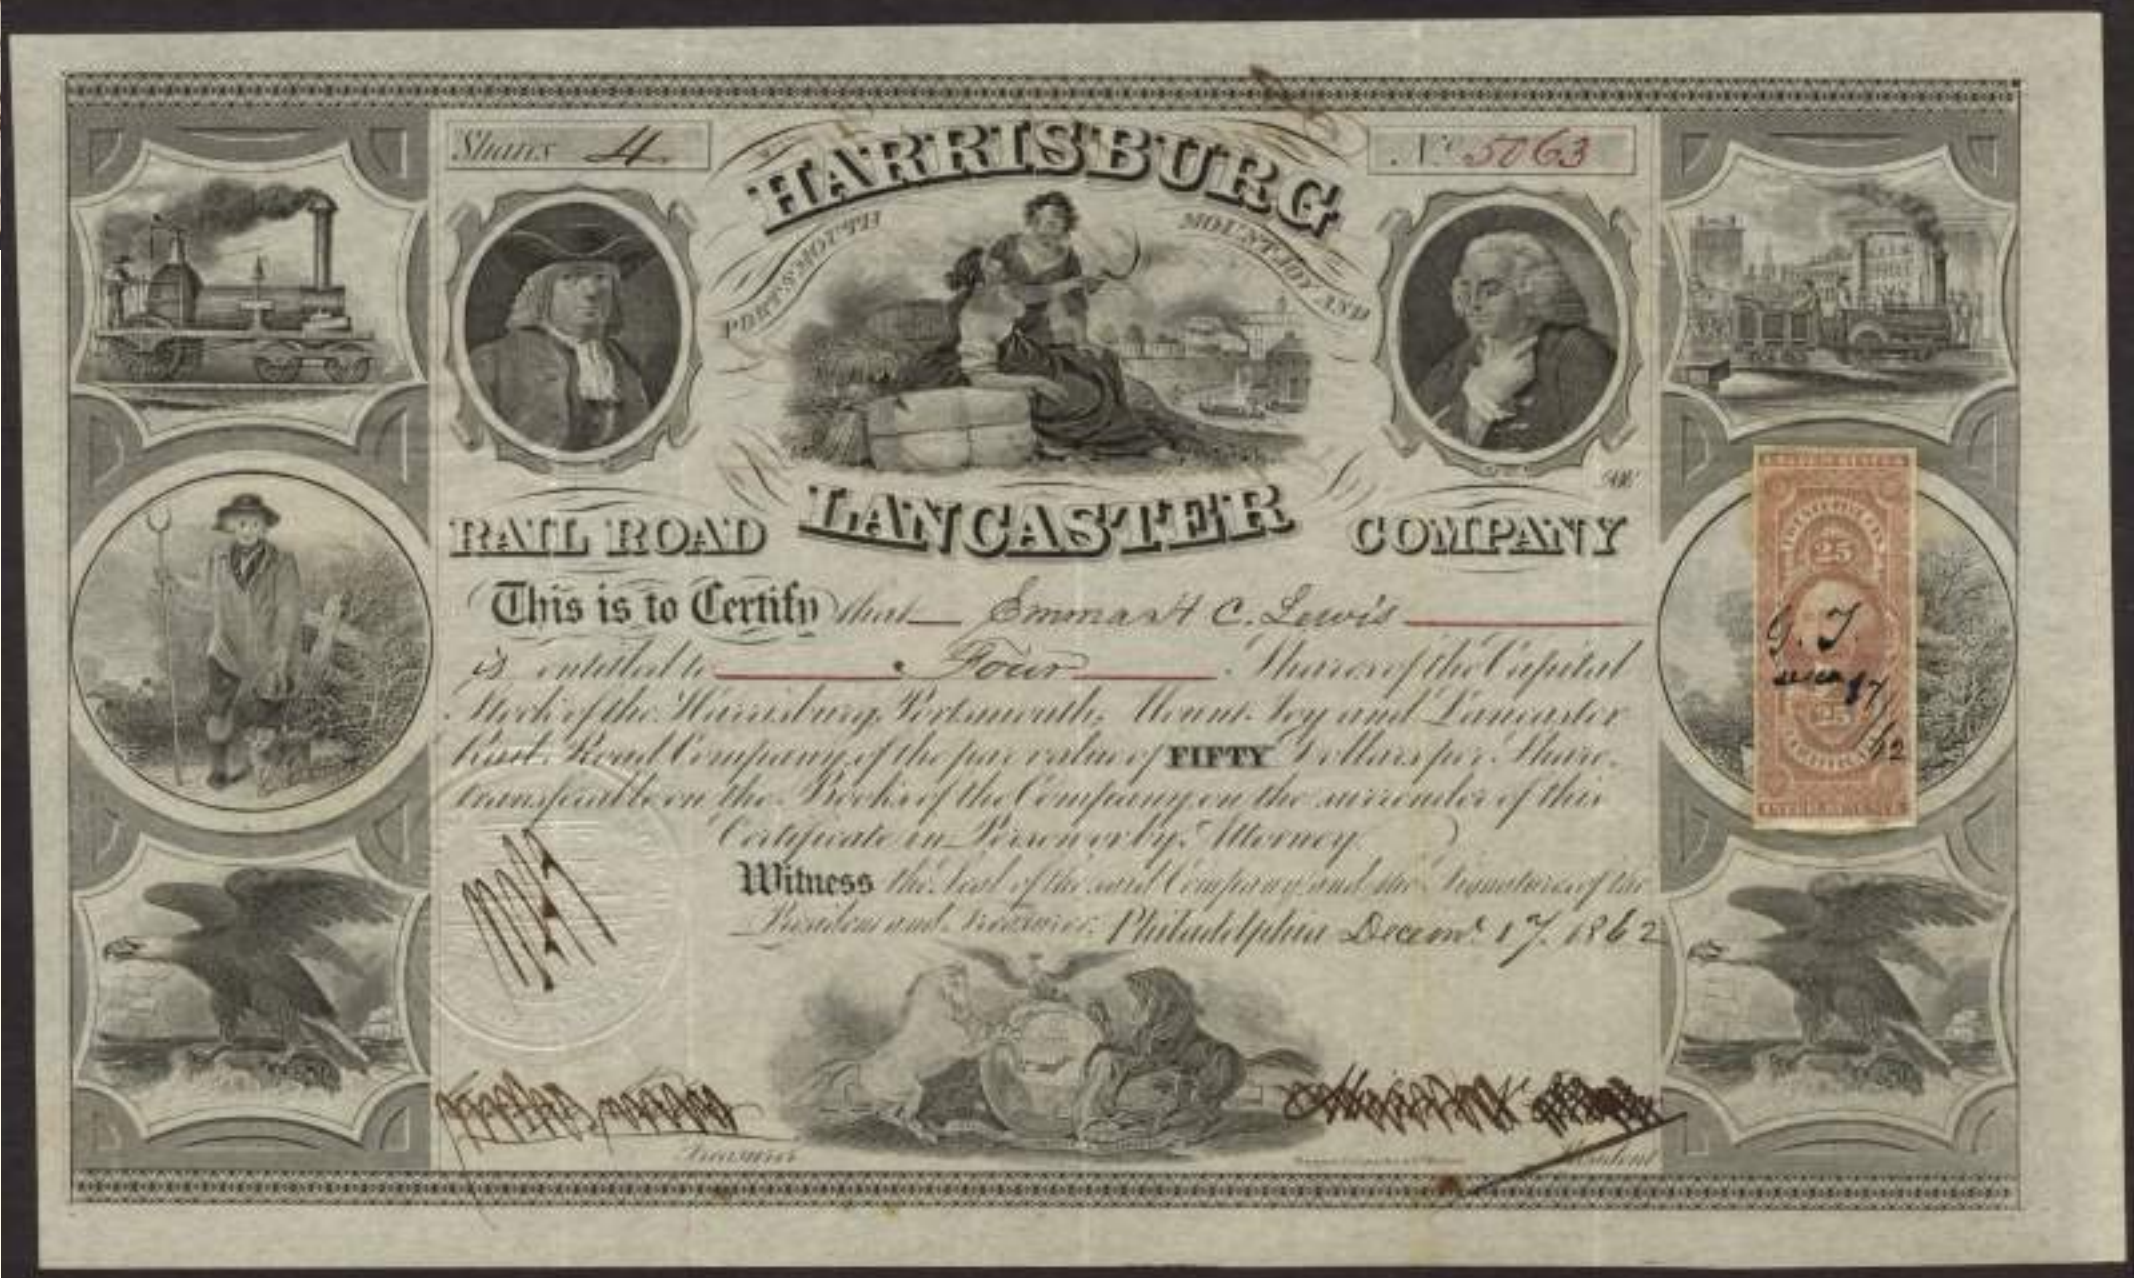 Shares 4.
No. 5063
HARRISBURG
PORTSMOUTH
MOUNT JOY AND
LANCASTER
RAIL ROAD
COMPANY
This is to Certify that Emma H C. Lewis
is entitled to Four Shares of the Capital
Stock of the Harrisburg, Portsmouth, Mount Joy and Lancaster
Rail Road Company, of the par value of FIFTY Dollars per Share.
transferable on the Books of the Company on the surrender of this
Certificate in Person or by Attorney.
Witness the Seal of the said Company and the Signatures of the
President and Treasurer. Philadelphia Decemr. 17. 1862
Treasurer
President
25
G. T.
17
/62
25